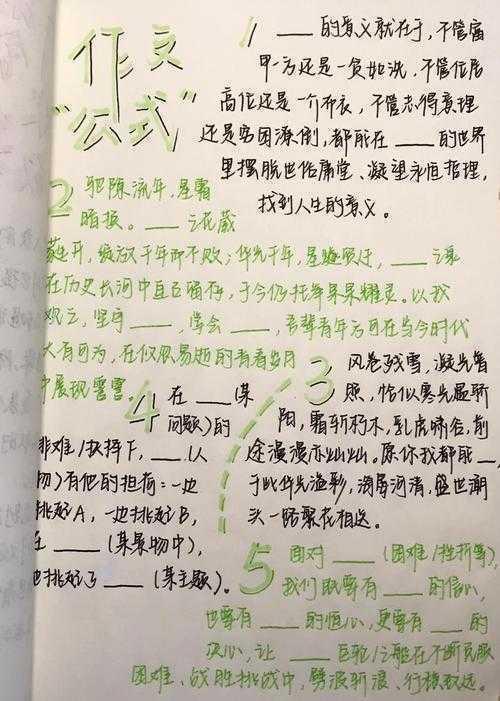 作文
"公式"
1 ___的意义就在于，不管富
甲一方还是一贫如洗，不管位居
高位还是一介布衣，不管志得意理
还是穷困潦倒，都能在___的世界
里摆脱世俗庸堂、凝望永恒哲理，
找到人生的意义。
2 驷隙流年，星霜
暗换。___之花葳
蕤开，绽放千年而不败；华光千年，
星驰___之豪
在历史长河中亘古留存，于今仍托举杲杲耀灵。以我
观之，坚守___，学会___，吾辈青年方可在当今时代
大有可为，在
易逝的青春岁月
中展现
3 风卷残雪，凝光普
照，恰似寒光最斩
阳，霜斩朽木，乳虎啸谷，前
途漫漫亦灿灿。愿你我都能___
于此华光溢彩，海晏河清，盛世潮
头一路繁花相送。
4 在___(某
问题)的
非难/抉择下，___以
物)有他的担荷：一边
挑起A，一边挑起B，
在___(某景物中)，
也挑起了___(某主题)。
5 面对___(困难/挫折等)，
我们既要有___的信心，
也要有___的恒心，更要有___的
决心，让___巨轮/之船在不断克服
困难、战胜挑战中，劈波斩浪、行稳致远。